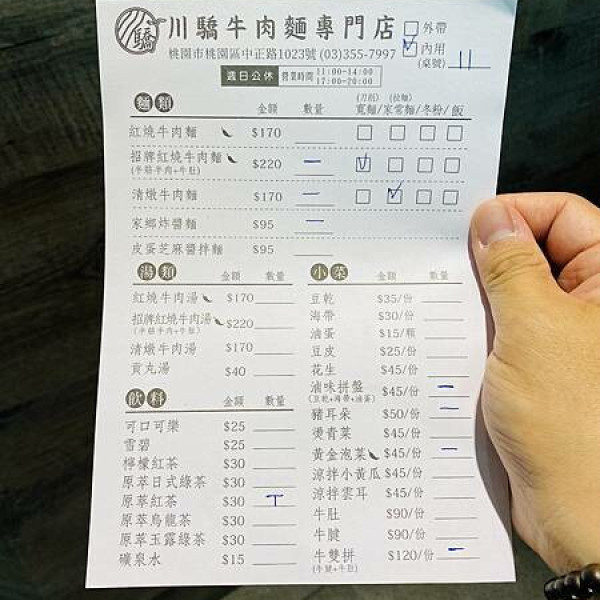 驕 川驕牛肉麵專門店 外帶
桃園市桃園區中正路1023號 (03)355-7997 內用
(桌號) 11
週日公休 營業時間 11:00-14:00
17:00-20:00
麵類 金額 數量 (刀削) (拉麵)
寬麵/家常麵/冬粉/飯
紅燒牛肉麵 $170
招牌紅燒牛肉麵 $220 一
(半筋半肉+牛肚)
清燉牛肉麵 $170 一
家鄉炸醬麵 $95 一
皮蛋芝麻醬拌麵 $95
湯類 金額 數量
紅燒牛肉湯 $170
招牌紅燒牛肉湯 $220
(半筋半肉+牛肚)
清燉牛肉湯 $170
貢丸湯 $40
飲料 金額 數量
可口可樂 $25
雪碧 $25
檸檬紅茶 $30
原萃日式綠茶 $30
原萃紅茶 $30 丅
原萃烏龍茶 $30
原萃玉露綠茶 $30
礦泉水 $15
小菜 金額 數量
豆乾 $35/份
海帶 $30/份
滷蛋 $15/顆
豆皮 $25/份
花生 $45/份
滷味拼盤 $45/份 一
(豆乾+海帶+滷蛋)
豬耳朵 $50/份 一
燙青菜 $45/份
黃金泡菜 $45/份 一
涼拌小黃瓜 $45/份
涼拌雲耳 $45/份
牛肚 $90/份
牛腱 $90/份
牛雙拼 $120/份 一
(牛腱+牛肚)